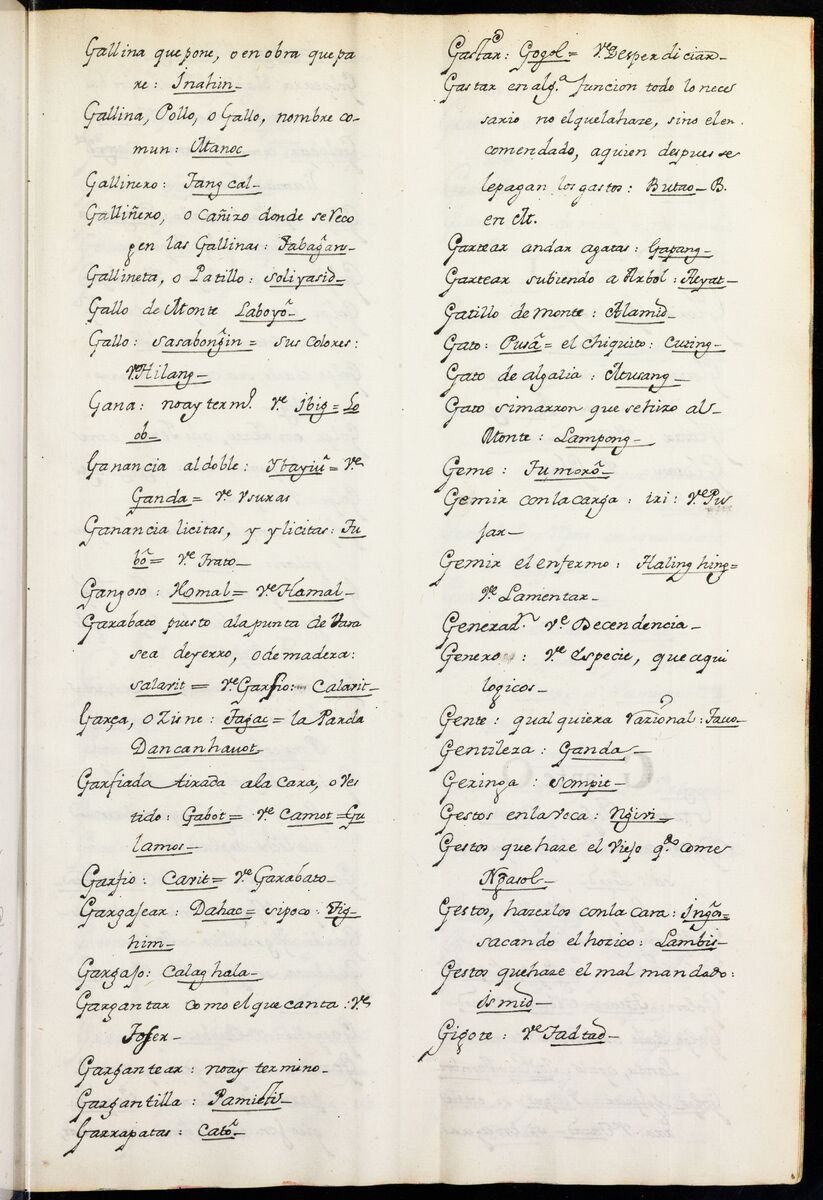 Gallina que pone, o en obra que pa
re: Inahin_
Gallina, Pollo, o Gallo, nombre co-
mun: Manoc
Gallinero: Tangcal_
Galliñero, o Cañizo donde se reco
gen las Gallinas: Tabag̃an_
Gallineta, o Patillo: Soliyasid_
Gallo de Monte Laboyo᷉_
Gallo: Sasabong̃in= sus colores:
Ve Hilang_
Gana: no ay termo. Ve Ibig= Lo
ob_
Ganancia al doble: Ibayiu᷉= Ve
Ganda= Ve Vsuras
Ganancia licitas, y ylicitas: Tu
bo᷉= Ve Trato_
Gangoso: Homal= Ve Hamal_
Garabato puesto a la punta de Vara
sea de yerro, o de madera:
salarit= Ve Garfio: Calarit_
Garça, o Zisne: Tag̃ac= la Parda
Dancanhauot_
Garfiada tirada a la cara, o ves
tido: Gabot= Ve Camot= Gu
lamos_
Garfio: Carit= Ve Garabato_
Gargajear: Dahac= sipoco: Tig-
him_
Gargajo: Calaghala_
Gargantar como el que canta: Ve
Toser_
Gargantear: no ay termino_
Gargantilla: Pamiitis_
Garrapatas: Cato᷉_
Gastar: Gogol= Ve Desperdiciar_
Gastar en alg.a funcion todo lo neces
sario no el que la haze, sino el en-
comendado, a quien despues se
le pagan los gastos: Butao_ B.
en M.
Gartear andar a gatas: Gapang_
Gartear subiendo a Arbol: Acyat_
Gatillo de monte: Alamid_
Gato: Pusa᷉= el chiquito: Cuting_
Gato de algalia: Musang_
Gato simarron que se hizo al
Monte: Lampong_
Geme: Tumoro᷉_
Gemir con la carga: iri: Ve Pu
jar_
Gemir el enfermo: Halinghing=
Ve Lamentar_
Generad.n Ve Decendencia_
Genero: Ve Especie, que aqui
logicos_
Gente: qual quiera razional: Tauo_
Gentileza: Ganda_
Geringa: Sompit_
Gestos en la voca: Ng̃iri_
Gestos que haze el Viejo q.do come
Ng̃asol_
Gestos, hazerlos con la cara: Ing̃os=
sacando el hozico: Lambis_
Gestos que haze el mal mandado:
Ismid_
Gigote: Ve Tadtad_